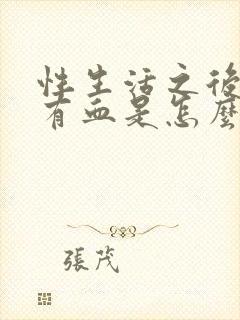 性生活之後
有血是怎麼
張茂